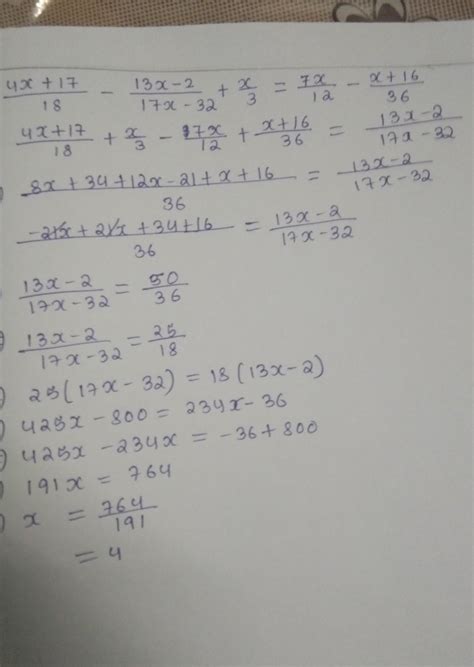 4x+17/18 - 13x-2/17x-32 + x/3 = 7x/12 - x+16/36
4x+17/18 + x/3 - 7x/12 + x+16/36 = 13x-2/17x-32
) 8x+34+12x-21+x+16/36 = 13x-2/17x-32
-21x+21x+34+16/36 = 13x-2/17x-32
13x-2/17x-32 = 50/36
) 13x-2/17x-32 = 25/18
) 25(17x-32) = 18(13x-2)
) 425x-800 = 234x-36
) 425x-234x = -36+800
) 191x = 764
) x = 764/191
= 4